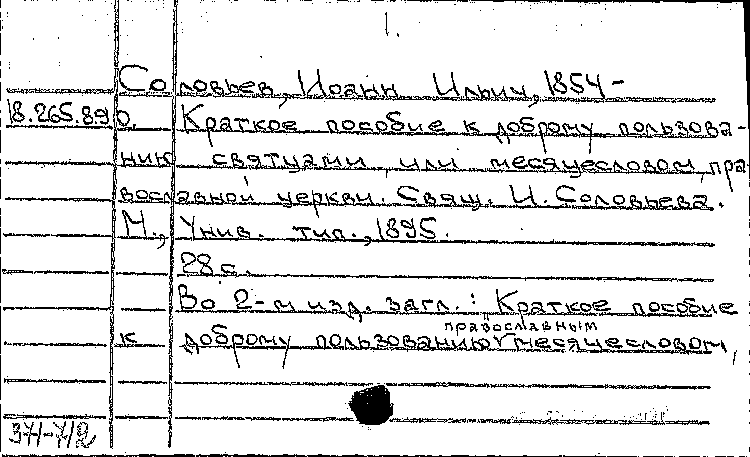 1.
Соловьев, Иоанн Ильич, 1854-
18.265.890. Краткое пособие к доброму пользова-
нию святцами, или месяцесловом, пра-
вославной церкви. Свящ. И. Соловьева.
М., Унив. тип., 1895.
28 с.
Во 2-м изд. загл.: Краткое пособие
православным
к доброму пользованию месяцесловом,
371-712